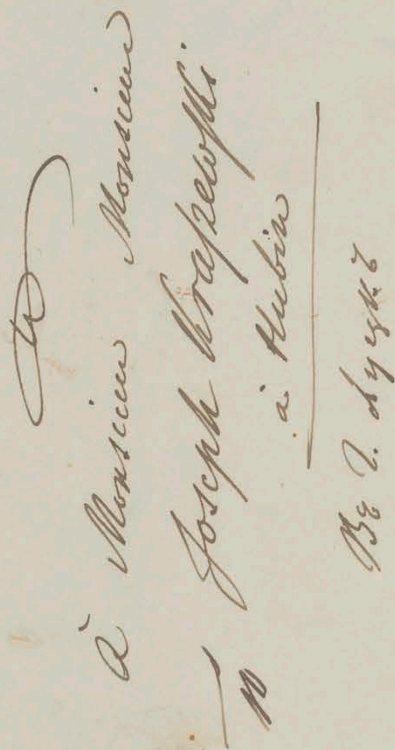 à Monsieur Monsieur
Joseph Kraszewski
à Hubin
Въ г. Луцкъ